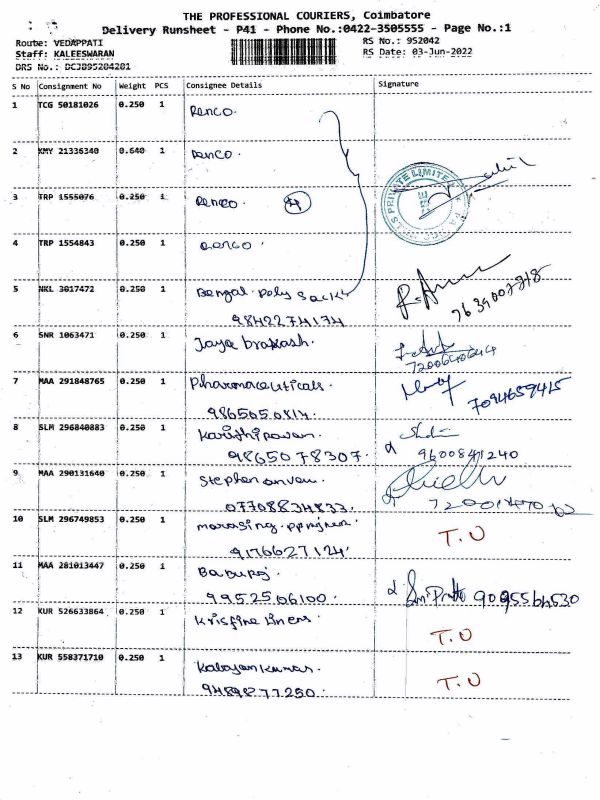 THE PROFESSIONAL COURIERS, Coimbatore
Delivery Runsheet - P41 - Phone No.:0422-3505555 - Page No.:1
Route: VEDAPPATI RS No.: 952042
Staff: KALEESWARAN RS Date: 03-Jun-2022
DRS No.: DCJB95204201
S No Consignment No Weight PCS Consignee Details Signature
1 TCG 50181026 0.250 1 Renco.
2 KMY 21336340 0.640 1 Renco.
3 TRP 1555076 0.250 1 Renco. 4
4 TRP 1554843 0.250 1 Renco.
5 NKL 3017472 0.250 1 Bengal. Poly Sacks
9842274174 7639007818
6 SNR 1063471 0.250 1 Jaya brakash.
7200640644
7 MAA 291848765 0.250 1 Pharmaceuticals.
9865050814. 7094659415
8 SLM 296840883 0.250 1 Karthipavan.
9865078307. 9600841240
9 MAA 290131640 0.250 1
07708834833.
10 SLM 296749853 0.250 1 T.U
9176627124.
11 MAA 281013447 0.250 1 Baburaj.
9952506100.
12 KUR 526633864 0.250 1 Krisfine liners.
T.U
13 KUR 558371710 0.250 1
94898277250. T.U